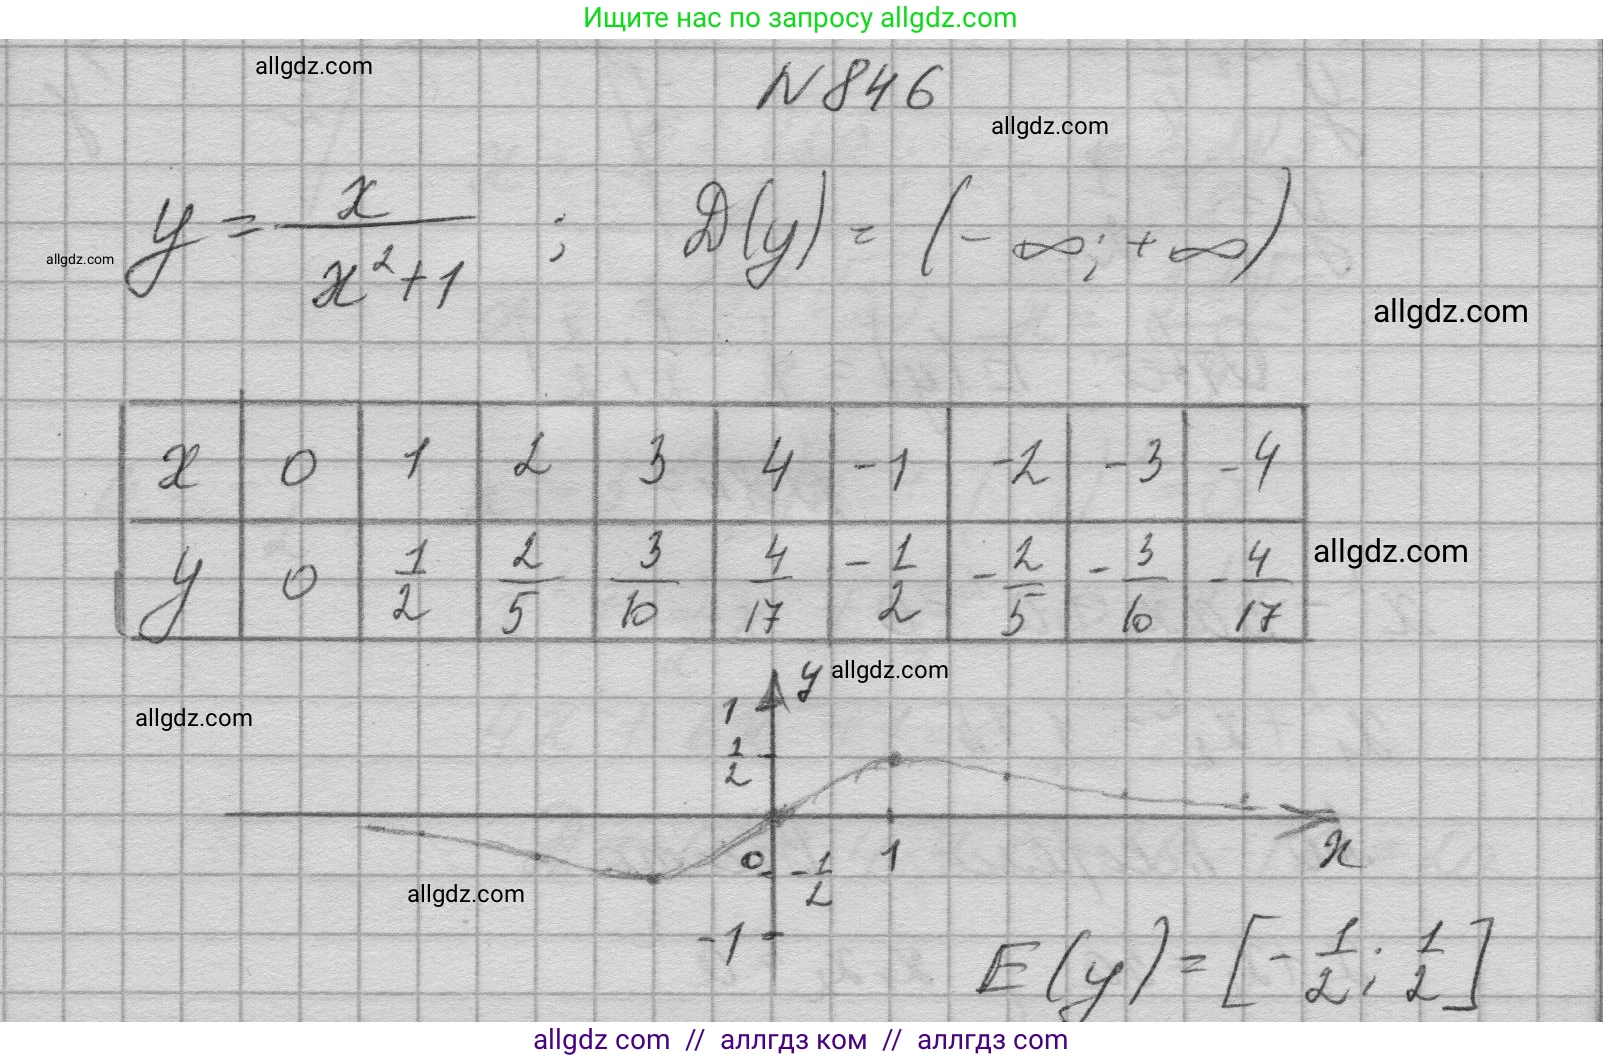 Ищите нас по запросу allgdz.com
allgdz.com
N 846
allgdz.com
y = x / (x² + 1) ; D(y) = (-∞; +∞)
allgdz.com
allgdz.com
x 0 1 2 3 4 -1 -2 -3 -4
y 0 1/2 2/5 3/10 4/17 -1/2 -2/5 -3/10 -4/17
allgdz.com
y allgdz.com
1
allgdz.com
1/2
0 -1/2 1 x
allgdz.com
-1
E(y) = [-1/2; 1/2]
allgdz com // аллгдз ком // аллгдз com